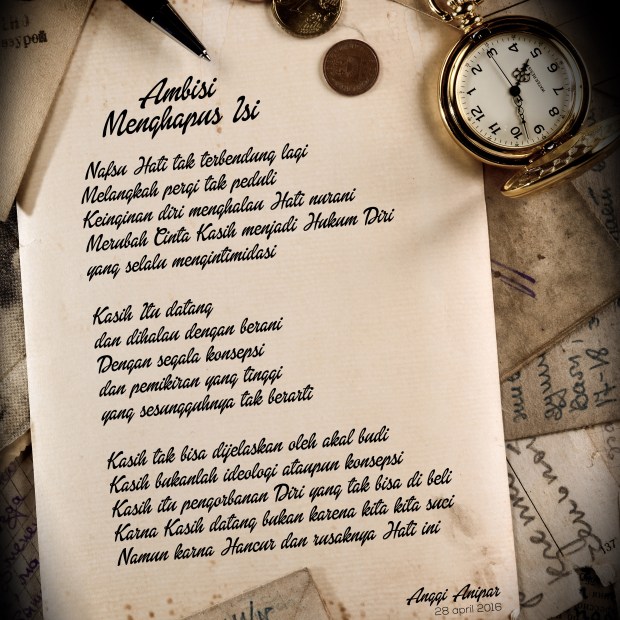 Ambisi
Menghapus Isi
Nafsu Hati tak terbendung lagi
Melangkah pergi tak peduli
Keinginan diri menghalau Hati nurani
Merubah Cinta Kasih menjadi Hukum Diri
yang selalu mengintimidasi
Kasih Itu datang
dan dihalau dengan berani
Dengan segala konsepsi
dan pemikiran yang tinggi
yang sesungguhnya tak berarti
Kasih tak bisa dijelaskan oleh akal budi
Kasih bukanlah ideologi ataupun konsepsi
Kasih itu pengorbanan Diri yang tak bisa di beli
Karna Kasih datang bukan karena kita kita suci
Namun karna Hancur dan rusaknya Hati ini
Anggi Anipar
28 april 2016
12
1
2
3
4
5
6
7
8
9
10
11
17-18
137